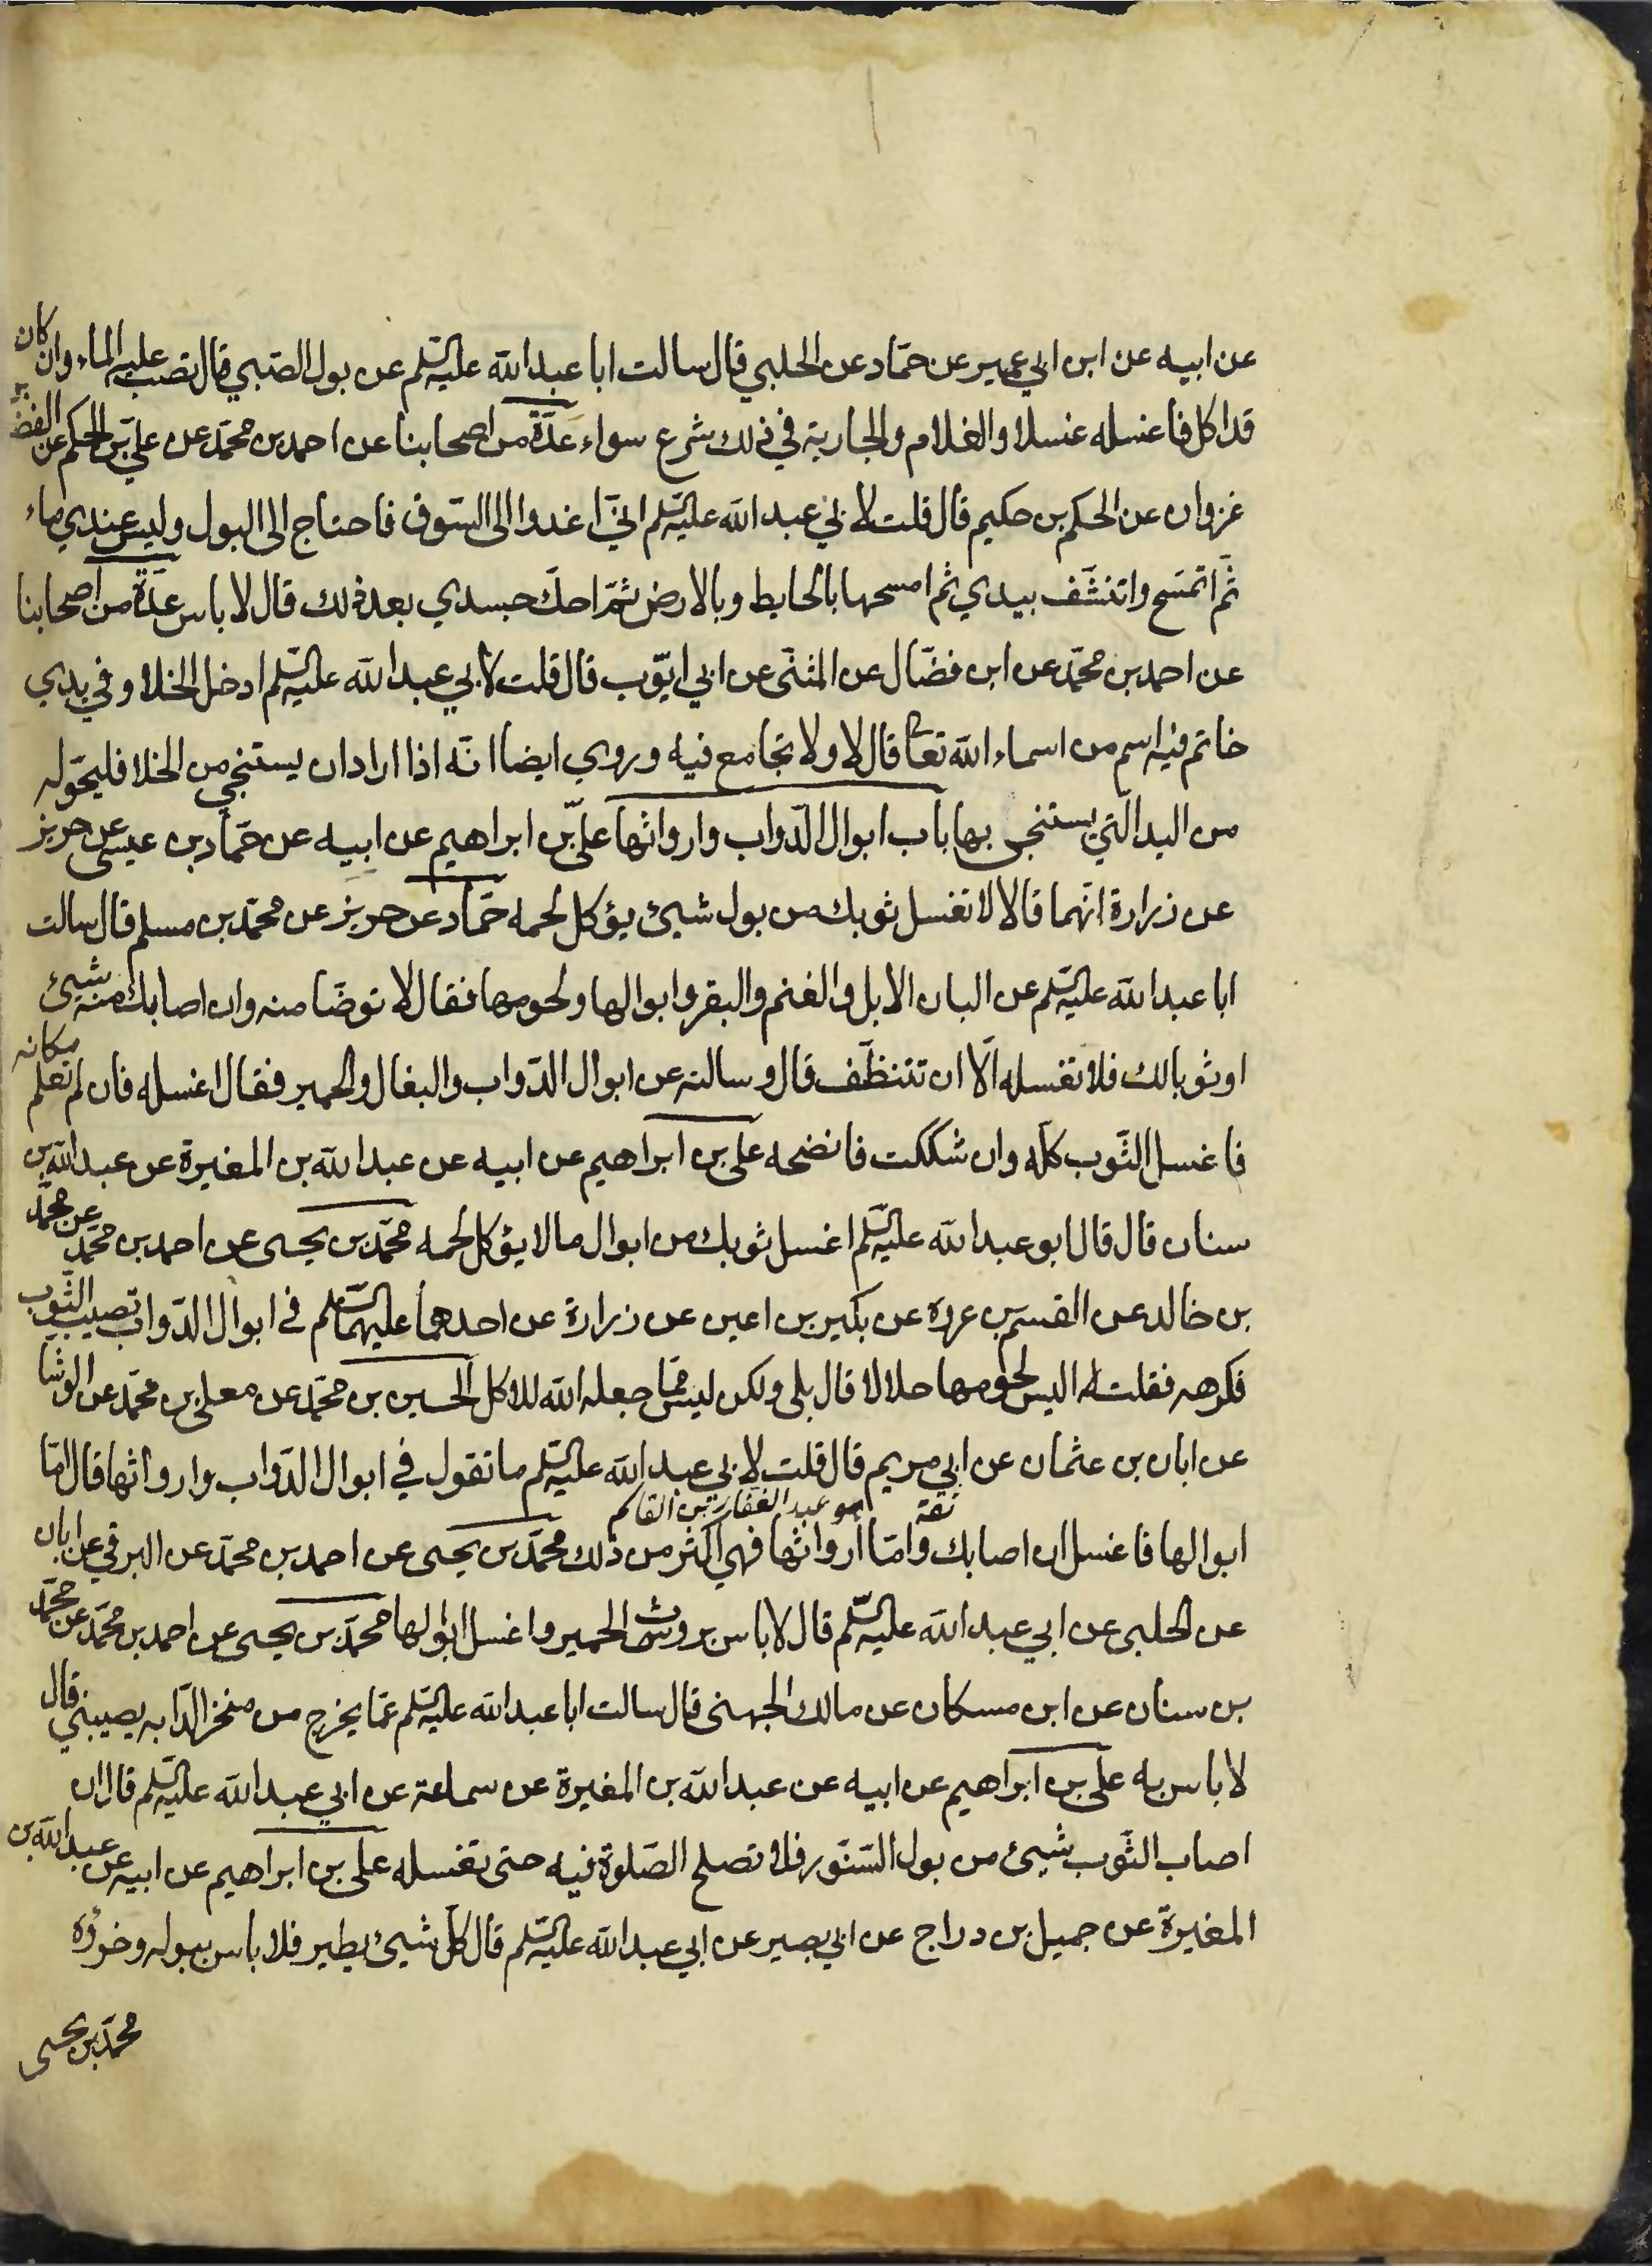 عن ابيه عن ابن ابي عمير عن حمّاد عن الحلبي قال سالت ابا عبد الله عليه السّلم عن بول الصّبي قال تصب عليه الماء وان كان
قد اكل فاغسله غسلا والغلام والجارية في ذلك شرع سواء عدّة من اصحابنا عن احمد بن محمّد عن عليّ بن الحكم عن الفضل بن
غزوان عن الحكم بن حكيم قال قلت لابي عبد الله عليه السّلم انّي اغدوا الى السّوق فاحتاج الى البول وليس عندي ماء
ثمّ اتمسّح واتنشّف بيدي ثم امسحها بالحايط وبالارض ثمّ احكّ جسدي بعد ذلك قال لا باس عدّة من اصحابنا
عن احمد بن محمّد عن ابن فضّال عن المثنّى عن ابي ايّوب قال قلت لابي عبد الله عليه السّلم ادخل الخلا وفي يدي
خاتم فيه اسم من اسماء الله تعا قال لا ولا تجامع فيه وروي ايضا انّه اذا اراد ان يستنجي من الخلا فليحوّله
من اليد الّتي يستنجى بها باب ابوال الدّواب وارواثها عليّ بن ابراهيم عن ابيه عن حمّاد بن عيسى عن حريز
عن زرارة انّهما قالا لا تغسل ثوبك من بول شيئ يؤكل لحمه حمّاد عن حريز عن محمّد بن مسلم قال سالت
ابا عبد الله عليه السّلم عن البان الابل والغنم والبقر وابوالها ولحومها فقال لا توضّا منه وان اصابك منه شيئ
او ثوبا لك فلا تغسله الّا ان تتنظّف قال وسالته عن ابوال الدّواب والبغال والحمير فقال اغسله فان لم تعلم مكانه
فاغسل الثّوب كلّه وان شككت فانضحه علي بن ابراهيم عن ابيه عن عبد الله بن المغيرة عن عبد الله بن
سنان قال قال ابو عبد الله عليه السّلم اغسل ثوبك من ابوال ما لا يؤكل لحمه محمّد بن يحيى عن احمد بن محمّد عن محمّد
بن خالد عن القسم بن عروة عن بكير بن اعين عن زرارة عن احدهما عليهما السّلم في ابوال الدّواب تصيب الثّوب
فكرهه فقلت له اليس لحومها حلالا قال بلى ولكن ليس ممّا جعله الله للاكل الحسين بن محمّد عن معلى بن محمّد عن الوشّا
عن ابان بن عثمان عن ابي مريم قال قلت لابي عبد الله عليه السّلم ما تقول في ابوال الدّواب وارواثها قال امّا
هو عبد الغفار بن القاسم ثقة
ابوالها فاغسل ان اصابك وامّا ارواثها فهي اكثر من ذلك محمّد بن يحيى عن احمد بن محمّد عن البرقي عن ابان
عن الحلبى عن ابي عبد الله عليه السّلم قال لا باس بروث الحمير واغسل ابوالها محمّد بن يحيى عن احمد بن محمّد عن محمّد
بن سنان عن ابن مسكان عن مالك الجهنى قال سالت ابا عبد الله عليه السّلم عمّا يخرج من منخر الدّابه يصيبني قال
لا باس به علي بن ابراهيم عن ابيه عن عبد الله بن المغيرة عن سماعة عن ابي عبد الله عليه السّلم قال ان
اصاب الثّوب شيئ من بول السّنّور فلا تصلح الصّلوة فيه حتى تغسله علي بن ابراهيم عن ابيه عن عبد الله بن
المغيرة عن جميل بن دراج عن ابي بصير عن ابي عبد الله عليه السّلم قال كلّ شيئ يطير فلا باس ببوله وخرؤه
محمّد بن يحيى